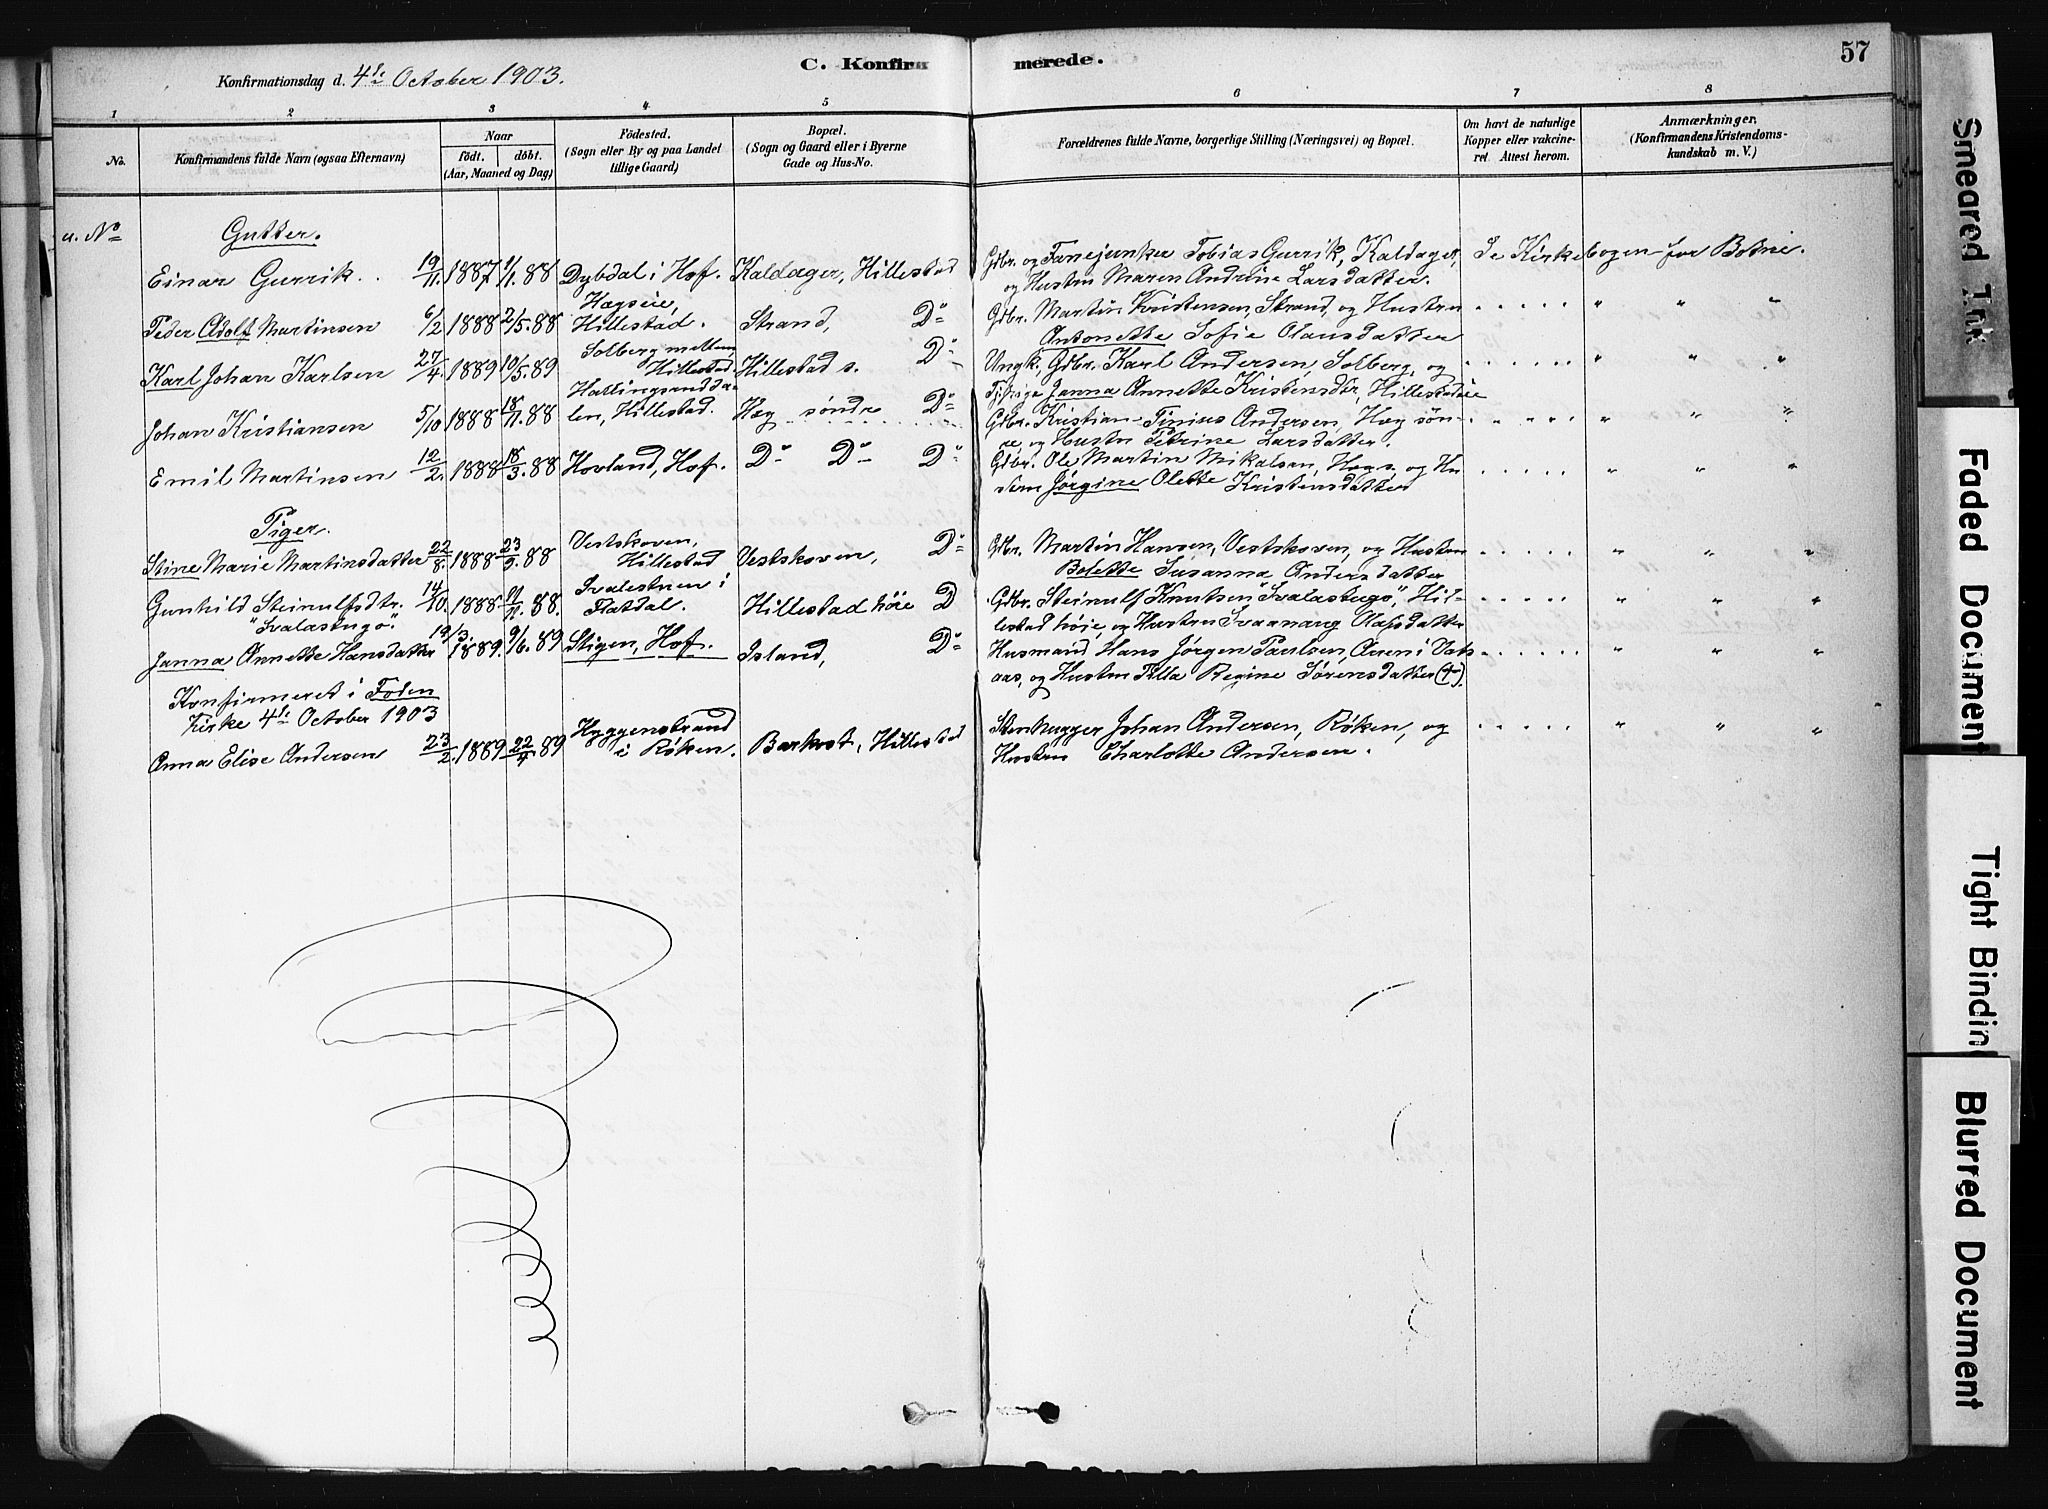 57
Konfirmationsdag d. 4de October 1903.
C. Konfirmerede.
1 2 3 4 5 6 7 8
No.
Konfirmandens fulde Navn (ogsaa Efternavn)
Naar
født. døbt.
(Aar, Maaned og Dag)
Fødested.
(Sogn eller By og paa Landet
tillige Gaard)
Bopæl.
(Sogn og Gaard eller i Byerne
Gade og Hus-No.
Forældrenes fulde Navne, borgerlige Stilling (Næringsvei) og Bopæl.
Om havt de naturlige
Kopper eller vakcine-
ret. Attest herom.
Anmærkninger.
(Konfirmandens Kristendoms-
kundskab m. V.)
u. No
Gutter.
Einar Gurrik. 19/11. 1887 1/1. 88 Dybdal i Hof. Kaldager, Hillestad Gdbr. og Fanejunker Tobias Gurrik, Kaldager, Se Kirkebogen for Botne.
og Hustru Maren Andrine Larsdatter.
Peder Adolf Martinsen 6/2 1888 2/5. 88 Hagseie, Hillestad. Strand, Do Gdbr. Martin Kristensen, Strand, og Hustru " " "
Antonette Sofie Olausdatter
Karl Johan Karlsen 27/4. 1889 10/5. 89 Solberg mellem, Hillestad Hillestad s. Do Ungk. Gdbr. Karl Andersen, Solberg, og " " "
Janna Annette Kristensdtr, Hillestadeie
Johan Kristiansen 5/10 1888 18/11. 88 len, Hillestad. Hag søndre Do Gdbr. Kristian Tinius Andersen, Hag søn- " " "
re, og Hustru Petrine Larsdatter.
Emil Martinsen 12/2. 1888 18/3. 88 Hovland, Hof. Do Do Do Gdbr. Ole Martin Mikalsen, Hag s., og Hu " " "
Jørgine Olette Kristensdatter
Piger.
Stine Marie Martinsdatter 22/8. 1888 23/9. 88 Vestskoven, Hillestad Vestskoven, Do Gdbr. Martin Hansen, Vestskoven, og Hustru " " "
Bolette Susanna Andersdatter
Gunhild Steinulfsdtr. 14/10. 1888. 11/11. 88. i Flatdal. Hillestad høie D Gdbr. Steinulf Knutsen "Svalastugo", Hil- " " "
"Svalastugo".
lestad høie, og Hustru Olafsdatter
Janna Annette Hansdatter 19/3. 1889. 9/6. 89 Stigen, Hof. Island, Do Husmand Hans Jørgen Paulsen, i Vas " " "
aas, og Hustru Regine Sørensdatter (†).
Konfirmeret i Foden
Kirke 4de October 1903
Anna Elise Andersen 23/2. 1889 22/4. 89 Hyggenstrand i Røken. Barkost, Hillestad Stenhugger Johan Andersen, Røken, og " " "
Hustru Charlotte Andersen.
Smeared Ink
Faded Document
Tight Bindin
Blurred Document